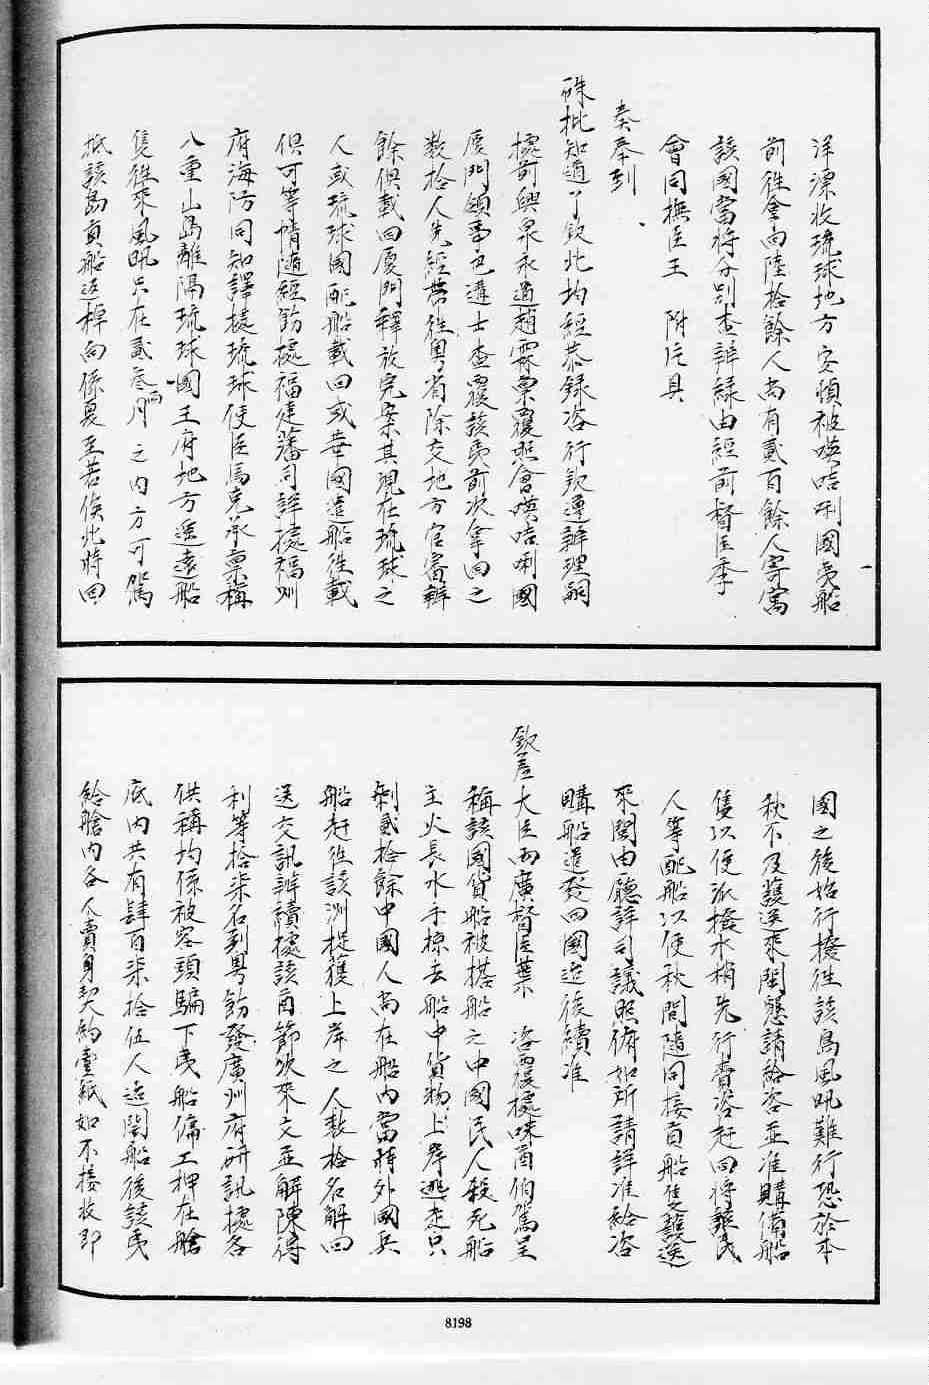 洋漂收琉球地方安頓被𠸄咭唎國夷船
前往拿向陸拾餘人尚有貳百餘人寄寓
該國當將分別查辦緣由經前督臣季
會同撫臣王　附片具
奏奉到
硃批知道了欽此均經恭錄咨行欽遵辦理嗣
據前興泉永道趙霖稟覆照會𠸄咭唎國
廈門領事官遘士查覆該夷前次拿回之
数拾人先經帶往粵省除交地方官審辦
餘俱載回廈門釋放完案其現在琉球之
人或琉球國配船載回或華國遣船往載
俱可等情隨經飭據福建藩司詳據福州
府海防同知譯據琉球使臣馬克承稟稱
八重山島離隔琉球國王府地方遙遠船
隻往來風颿只在貳叁兩月之內方可駕
抵該島貢船返棹向係夏至若俟此將回
國之後始行撥往該島風颿難行恐於本
秋不及護送來閩懇請給咨並准購備船
隻以便派撥水梢先行賫咨赶回將該民
人等配船以便秋間隨同接貢船隻護送
來閩由廳詳司議照俯如所請詳准給咨
購船遣發回國迨後續准
欽差大臣兩廣督臣葉　咨覆據咪酋伯駕呈
稱該國貨船被搭船之中國民人殺死船
主火長水手掠去船中貨物上岸逃走只
剩貳拾餘中國人尚在船內當將外國兵
船赶往該洲捉獲上岸之人数拾名解回
送交訊辦續據該酋節次來文並解陳得
利等拾柒名到粵飭發廣州府研訊據各
供稱均係被客頭騙下夷船傭工押在艙
底內共有肆百柒拾伍人迨開船後該夷
給艙內各人賣身契約壹紙如不接收即
8198